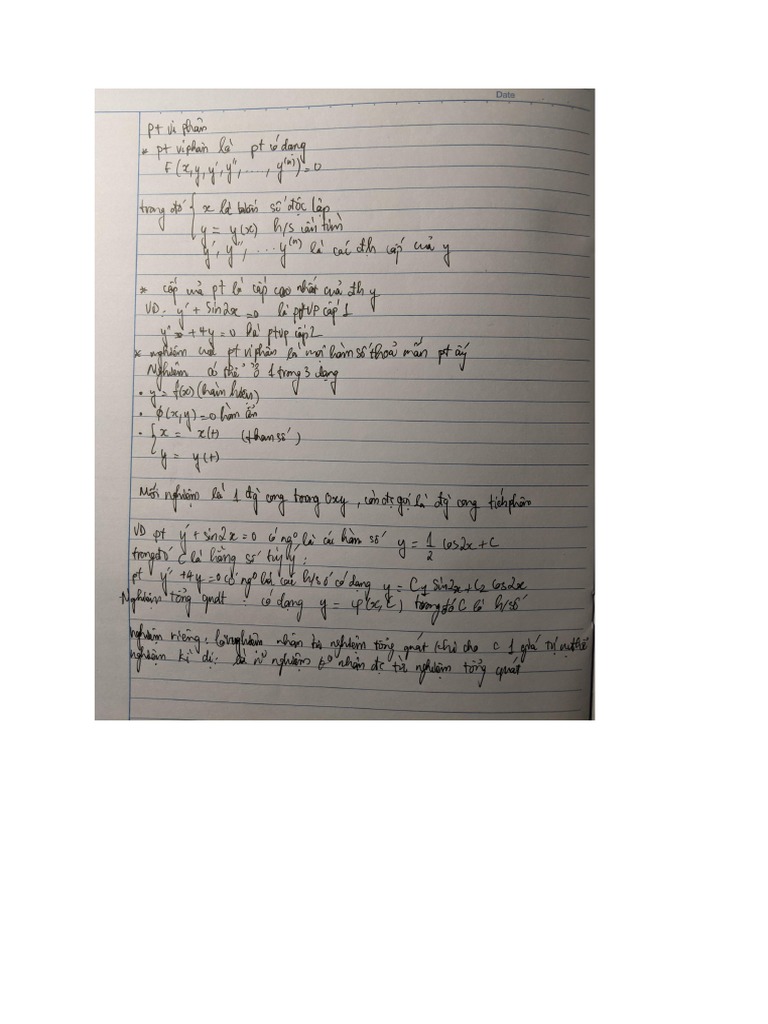 Date
pt vi phân
* pt vi phân là pt có dạng
F(x,y,y',y'',...,y⁽ⁿ⁾)=0
trong đó { x là biến số độc lập
y = y(x) h/s cần tìm
y', y'', ... y⁽ⁿ⁾ là các đh cấp của y
* cấp của pt là cấp cao nhất của đh y
VD: y' + sin2x = 0 là ptVP cấp 1
y'' + 4y = 0 là ptvp cấp 2
* nghiệm của pt vi phân là mọi hàm số thoả mãn pt ấy
Nghiệm có thể ở 1 trong 3 dạng
• y = f(x) (hàm hiện)
• ϕ(x,y)=0 hàm ẩn
• { x = x(t) (tham số)
y = y(t)
Mỗi nghiệm là 1 đg cong trong Oxy, còn đc gọi là đg cong tích phân
VD pt y' + sin2x = 0 có ngº là các hàm số y = 1/2 cos2x + C
trong đó C là hằng số tùy ý:
pt y'' + 4y = 0 có ngº là các h/số có dạng y = C₁ sin2x + C₂ cos2x
Nghiệm tổng quát : có dạng y = φ(x,C) trong đó C là h/số
nghiệm riêng: là nghiệm nhận từ nghiệm tổng quát khi cho C 1 giá trị cụ thể
nghiệm kì dị: là nghiệm kº nhận đc từ nghiệm tổng quát